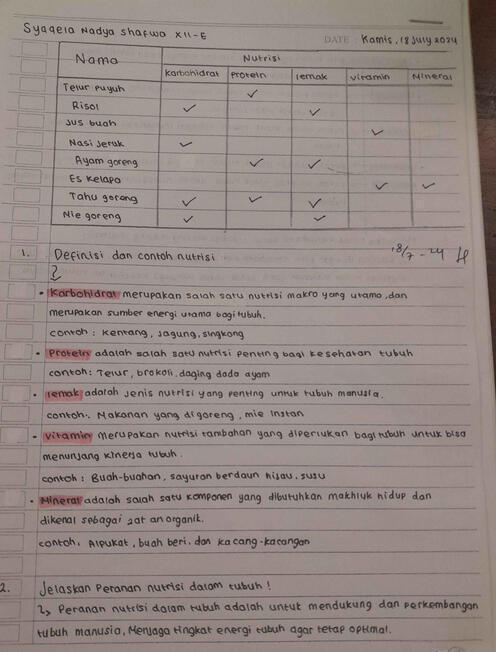 Syaqela Nadya Shafwa XII-E
DATE Kamis, 18 July 2024
Nama Nutrisi
Karbohidrat Protein lemak vitamin Mineral
Telur puyuh ✓
Risol ✓ ✓
Jus buah ✓
Nasi Jeruk ✓
Ayam goreng ✓ ✓
Es Kelapa ✓ ✓
Tahu goreng ✓ ✓ ✓
Mie goreng ✓ ✓
1. Definisi dan contoh nutrisi
18/7 - 24
• Karbohidrat merupakan salah satu nutrisi makro yang utama, dan
merupakan sumber energi utama bagi tubuh.
contoh : Kentang, Jagung, singkong
• Protein adalah salah satu nutrisi penting bagi kesehatan tubuh
contoh : Telur, brokoli, daging dada ayam
• lemak adalah jenis nutrisi yang penting untuk tubuh manusia.
contoh : Makanan yang digoreng, mie instan
• vitamin merupakan nutrisi tambahan yang diperlukan bagi tubuh untuk bisa
menunjang kinerja tubuh.
contoh : Buah-buahan, sayuran berdaun hijau, susu
• Mineral adalah salah satu komponen yang dibutuhkan makhluk hidup dan
dikenal sebagai zat anorganik.
contoh, Alpukat, buah beri, dan kacang-kacangan
2. Jelaskan Peranan nutrisi dalam tubuh !
Peranan nutrisi dalam tubuh adalah untuk mendukung dan perkembangan
tubuh manusia, Menjaga tingkat energi tubuh agar tetap optimal.